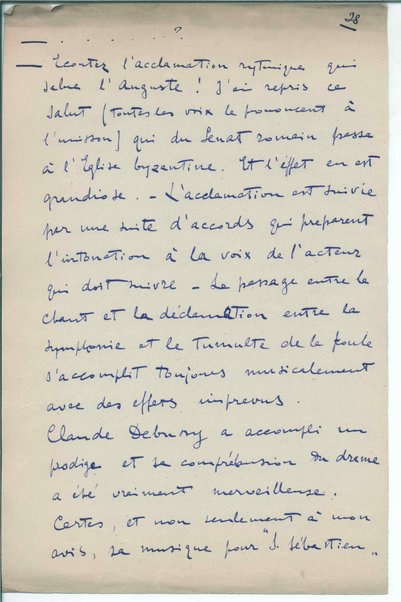 28
— . . . . . . ?
— Ecoutez l'acclamation rytmique qui
salue l'Auguste ! J'ai repris ce
salut (toutes les voix le prononcent à
l'unisson) qui du Senat romain passa
à l'Eglise byzantine. Et l'effet en est
grandiose. – L'acclamation est suivie
par une suite d'accords qui preparent
l'intonation à la voix de l'acteur
qui doit suivre – Le passage entre le
chant et la déclamation entre la
symphonie et le tumulte de la foule
s'accomplit toujours musicalement
avec des effets imprevus.
Claude Debussy a accompli un
prodige et sa compréhension du drame
a été vraiment merveilleuse.
Certes, et non seulement à mon
avis, sa musique pour "S. Sébastien„